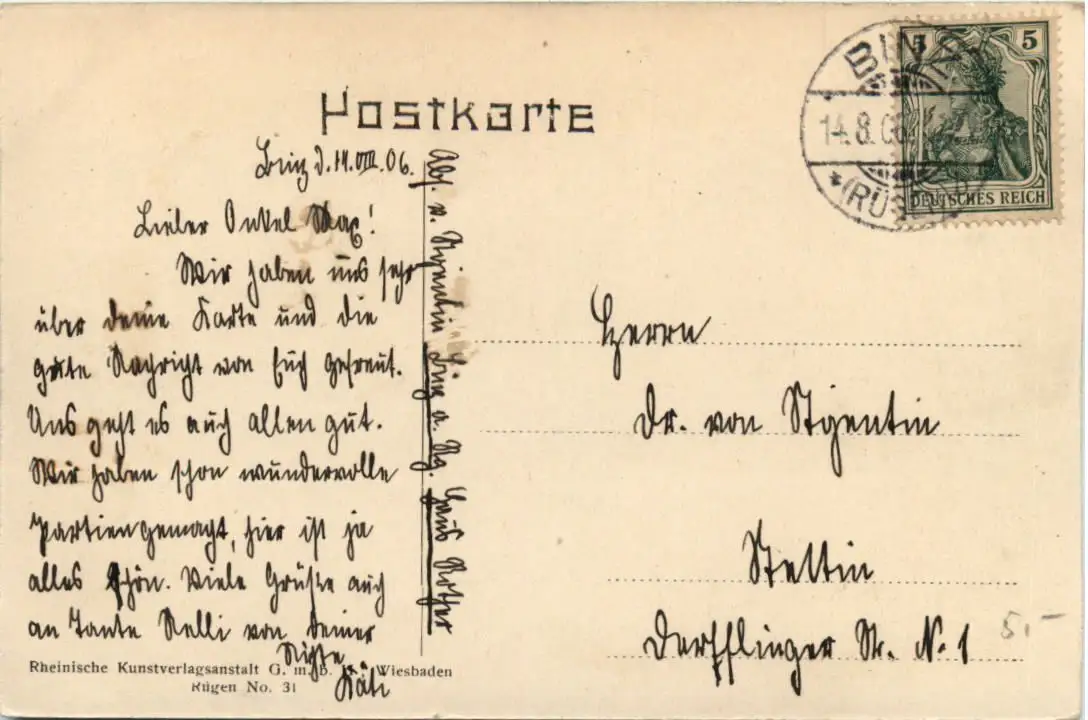 Postkarte
Binz d. 14. VIII. 06.
Lieber Onkel Max!
Wir haben uns sehr
über deine Karte und die
gute Nachricht von Euch gefreut.
Uns geht es auch allen gut.
Wir haben schon wundervolle
Partien gemacht, hier ist ja
alles schön. Viele Grüsse auch
an Tante Nelli von Deiner
Nichte
Käti
Rheinische Kunstverlagsanstalt G. m. b. H. Wiesbaden
Rügen No. 31
Abs. v. Binz a. Rg. Haus Rother
BINZ
14.8.06
* (RÜGEN)
5 5
DEUTSCHES REICH
Herrn
Dr. von
Stettin
Derfflinger Str. N. 1
5.-